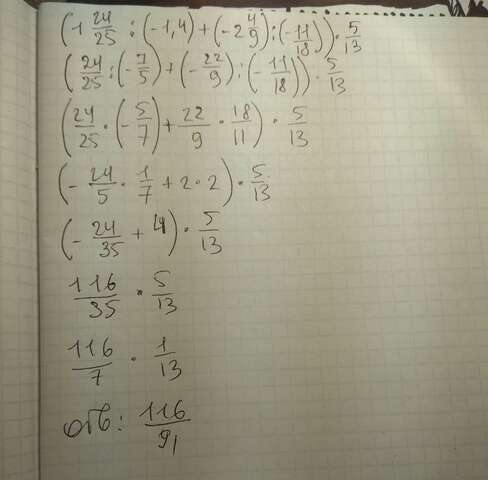 (1 24/25 : (-1,4) + (-2 4/9) : (-11/18)) · 5/13
(24/25 : (-7/5) + (-22/9) : (-11/18)) · 5/13
(24/25 · (-5/7) + 22/9 · 18/11) · 5/13
(- 24/5 · 1/7 + 2 · 2) · 5/13
(- 24/35 + 4) · 5/13
116/35 · 5/13
116/7 · 1/13
отв: 116/91